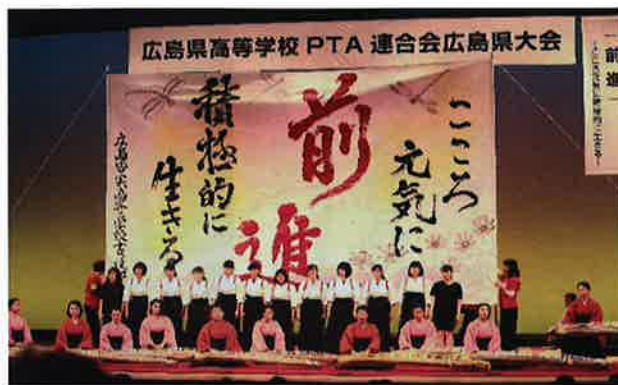 広島県高等学校PTA連合会広島県大会
こころ
元気に
前進
積極的に
生きる
前
進